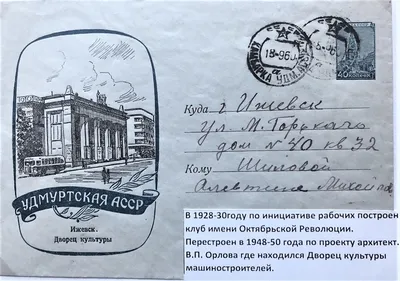 18-960
КАМБАРКА УДМ.
40 КОПЕЕК
Куда г Ижевск
ул. М. Горького
дом № 40 кв 32
Кому Шиловой
УДМУРТСКАЯ АССР
Ижевск.
Дворец культуры
В 1928-30году по инициативе рабочих построен
клуб имени Октябрьской Революции.
Перестроен в 1948-50 года по проекту архитект.
В.П. Орлова где находился Дворец культуры
машиностроителей.